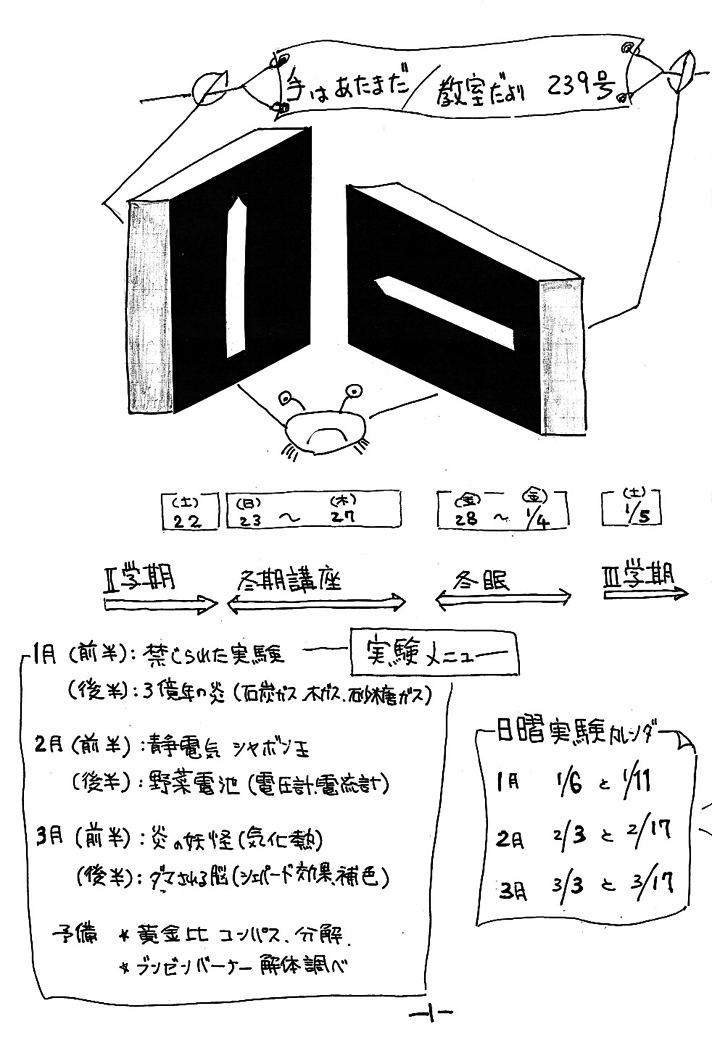 手はあたまだ/教室だより 239号
(土) (日) (木) (金) (金) (土)
22 23 〜 27 28 〜 1/4 1/5
Ⅱ学期 冬期講座 冬眠 Ⅲ学期
実験メニュー
1月(前半):禁じられた実験
(後半):3億年の炎(石炭ガス.木ガス.砂糖ガス)
2月(前半):静電気 シャボン玉
(後半):野菜電池(電圧計.電流計)
3月(前半):炎の妖怪(気化熱)
(後半):ダマされる脳(シェパード効果.補色)
予備 * 黄金比 コンパス.分解.
* ブンゼンバーナー 解体調べ
日曜実験カレンダー
1月 1/6 と 1/11
2月 2/3 と 2/17
3月 3/3 と 3/17
-1-